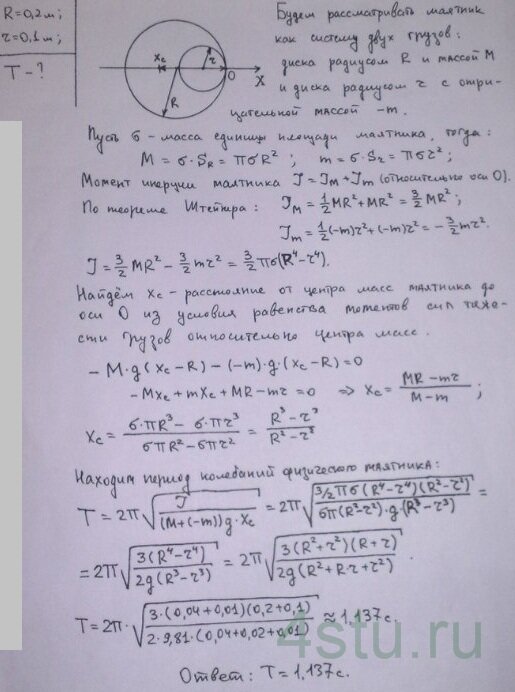 R=0,2м;
r=0,1м;
T-?
Xc
r
O
X
R
Будем рассматривать маятник
как систему двух грузов:
диска радиусом R и массой M
и диска радиусом r с отри-
цательной массой -m.
Пусть σ - масса единицы площади маятника, тогда:
M = σ·S_R = πσR² ; m = σ·S_r = πσr² ;
Момент инерции маятника J = J_M + J_m (относительно оси O).
По теореме Штейнера: J_M = 1/2 MR² + MR² = 3/2 MR² ;
J_m = 1/2 (-m)r² + (-m)r² = -3/2 mr².
J = 3/2 MR² - 3/2 mr² = 3/2 πσ(R⁴ - r⁴).
Найдём Xc - расстояние от центра масс маятника до
оси O из условия равенства моментов сил тяже-
сти грузов относительно центра масс.
- M·g(Xc - R) - (-m)·g·(Xc - R) = 0
- MXc + mXc + MR - mr = 0 ⇒ Xc = (MR - mr)/(M - m) ;
Xc = (σ·πR³ - σ·πr³)/(σπR² - σπr²) = (R³ - r³)/(R² - r²)
Находим период колебаний физического маятника:
T = 2π√(J/((M+(-m))g·Xc)) = 2π√(3/2 πσ(R⁴ - r⁴)(R² - r²)/(σπ(R² - r²)·g·(R³ - r³))) =
= 2π√(3(R⁴ - r⁴)/(2g(R³ - r³))) = 2π√(3(R² + r²)(R + r)/(2g(R² + R·r + r²))).
T = 2π·√(3·(0,04+0,01)(0,2+0,1)/(2·9,81·(0,04+0,02+0,01))) ≈ 1,137с.
Ответ: T = 1,137с.
4stu.ru